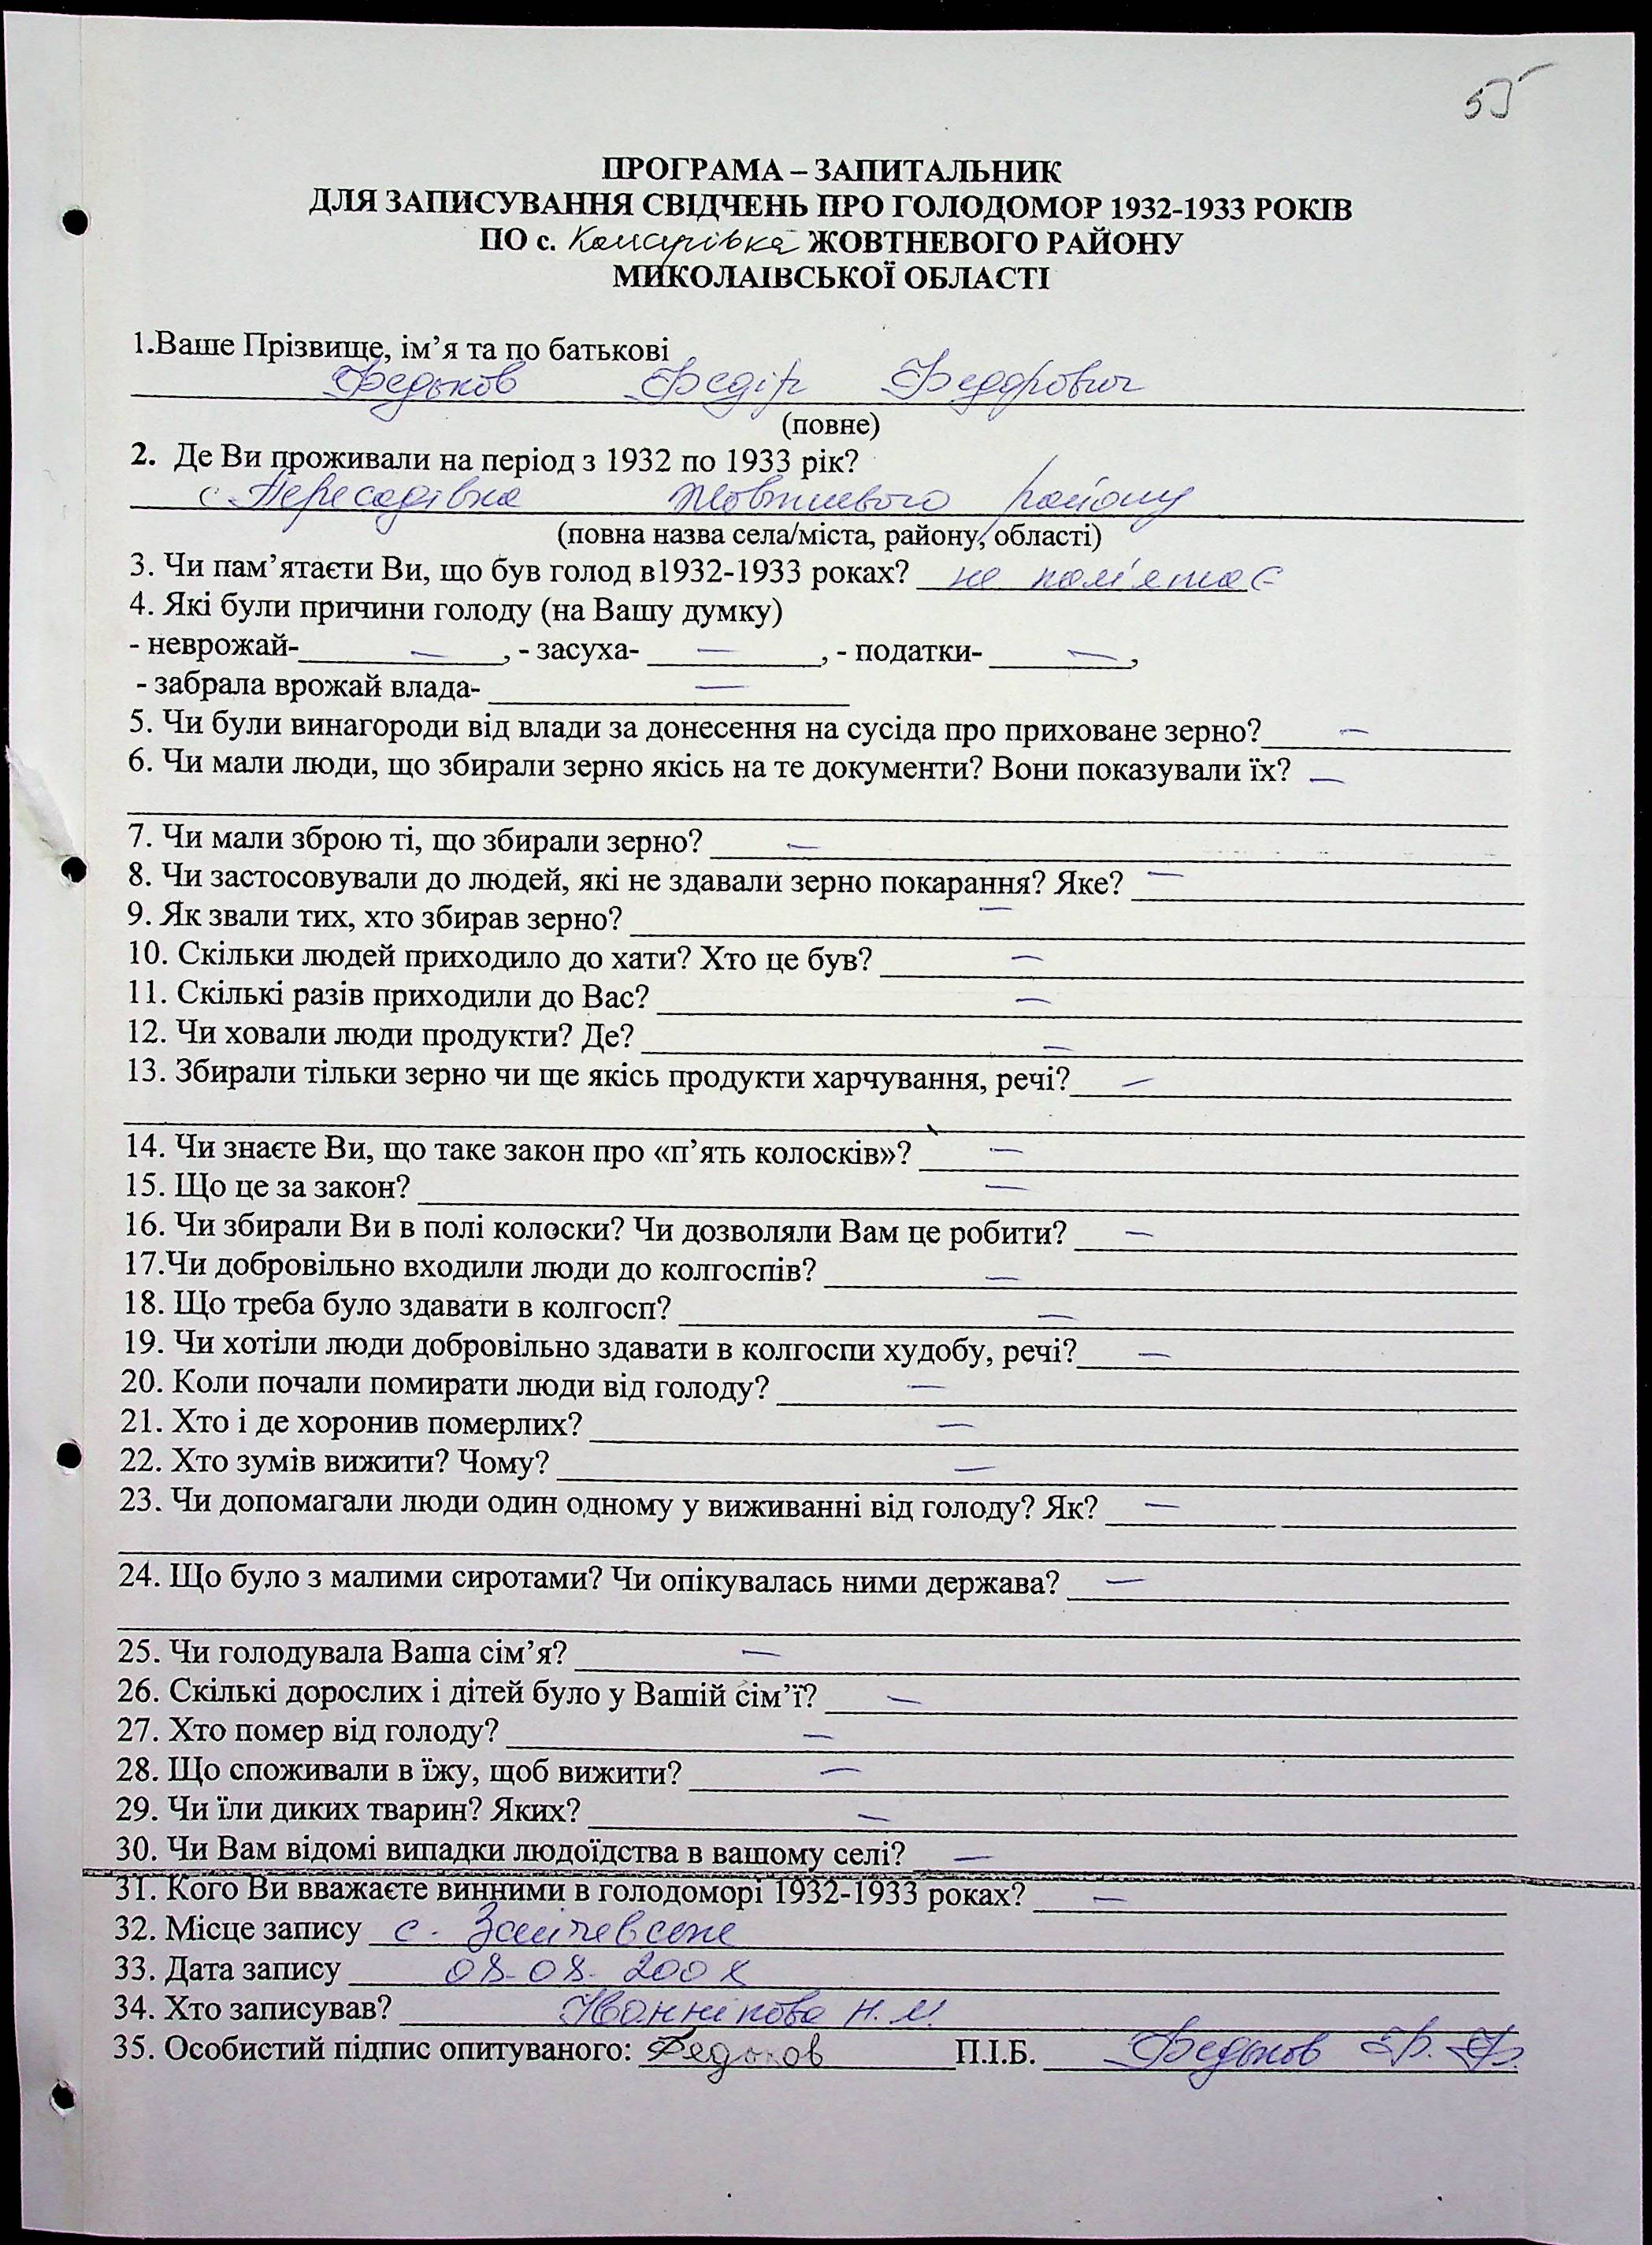 55
ПРОГРАМА – ЗАПИТАЛЬНИК
ДЛЯ ЗАПИСУВАННЯ СВІДЧЕНЬ ПРО ГОЛОДОМОР 1932-1933 РОКІВ
ПО с. ЖОВТНЕВОГО РАЙОНУ
МИКОЛАІВСЬКОЇ ОБЛАСТІ
1.Ваше Прізвище, ім’я та по батькові
Федьков Федір Федорович
(повне)
2. Де Ви проживали на період з 1932 по 1933 рік?
с. Пересадівка Жовтневого району
(повна назва села/міста, району, області)
3. Чи пам’ятаєти Ви, що був голод в1932-1933 роках? не пам'ятає
4. Які були причини голоду (на Вашу думку)
- неврожай- — , - засуха- — , - податки- — ,
- забрала врожай влада- —
5. Чи були винагороди від влади за донесення на сусіда про приховане зерно? —
6. Чи мали люди, що збирали зерно якісь на те документи? Вони показували їх? —
7. Чи мали зброю ті, що збирали зерно? —
8. Чи застосовували до людей, які не здавали зерно покарання? Яке? —
9. Як звали тих, хто збирав зерно? —
10. Скільки людей приходило до хати? Хто це був? —
11. Скількі разів приходили до Вас? —
12. Чи ховали люди продукти? Де? —
13. Збирали тільки зерно чи ще якісь продукти харчування, речі? —
14. Чи знаєте Ви, що таке закон про «п’ять колосків»? —
15. Що це за закон? —
16. Чи збирали Ви в полі колоски? Чи дозволяли Вам це робити? —
17.Чи добровільно входили люди до колгоспів? —
18. Що треба було здавати в колгосп? —
19. Чи хотіли люди добровільно здавати в колгоспи худобу, речі? —
20. Коли почали помирати люди від голоду? —
21. Хто і де хоронив померлих? —
22. Хто зумів вижити? Чому? —
23. Чи допомагали люди один одному у виживанні від голоду? Як? —
24. Що було з малими сиротами? Чи опікувалась ними держава? —
25. Чи голодувала Ваша сім’я? —
26. Скількі дорослих і дітей було у Вашій сім’ї? —
27. Хто помер від голоду? —
28. Що споживали в їжу, щоб вижити? —
29. Чи їли диких тварин? Яких? —
30. Чи Вам відомі випадки людоїдства в вашому селі? —
31. Кого Ви вважаєте винними в голодоморі 1932-1933 роках? —
32. Місце запису с.
33. Дата запису 08.08.2008
34. Хто записував? Н.М.
35. Особистий підпис опитуваного: Федьков П.І.Б. Федьков Ф.Ф.